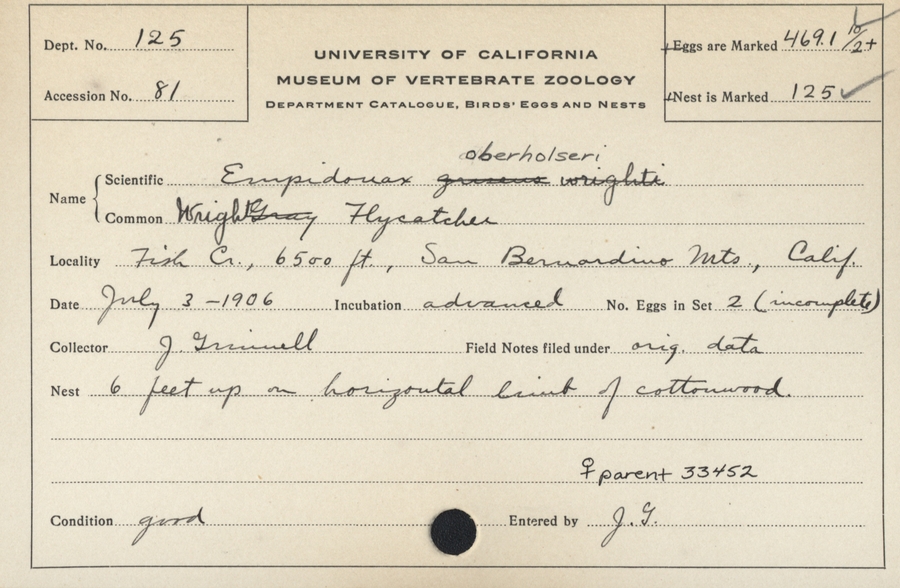 Dept. No. 125
Accession No. 81
UNIVERSITY OF CALIFORNIA
MUSEUM OF VERTEBRATE ZOOLOGY
DEPARTMENT CATALOGUE, BIRDS' EGGS AND NESTS
Eggs are Marked 469.1 10/2+
Nest is Marked 125 ✓
oberholseri
Name { Scientific Empidonax griseus wrighti
Common Wright Gray Flycatcher
Locality Fish Cr., 6500 ft., San Bernardino Mts., Calif.
Date July 3 - 1906 Incubation advanced No. Eggs in Set 2 (incomplete)
Collector J Grinnell Field Notes filed under orig. data
Nest 6 feet up on horizontal limb of cottonwood.
♀ parent 33452
Condition good Entered by J. G.